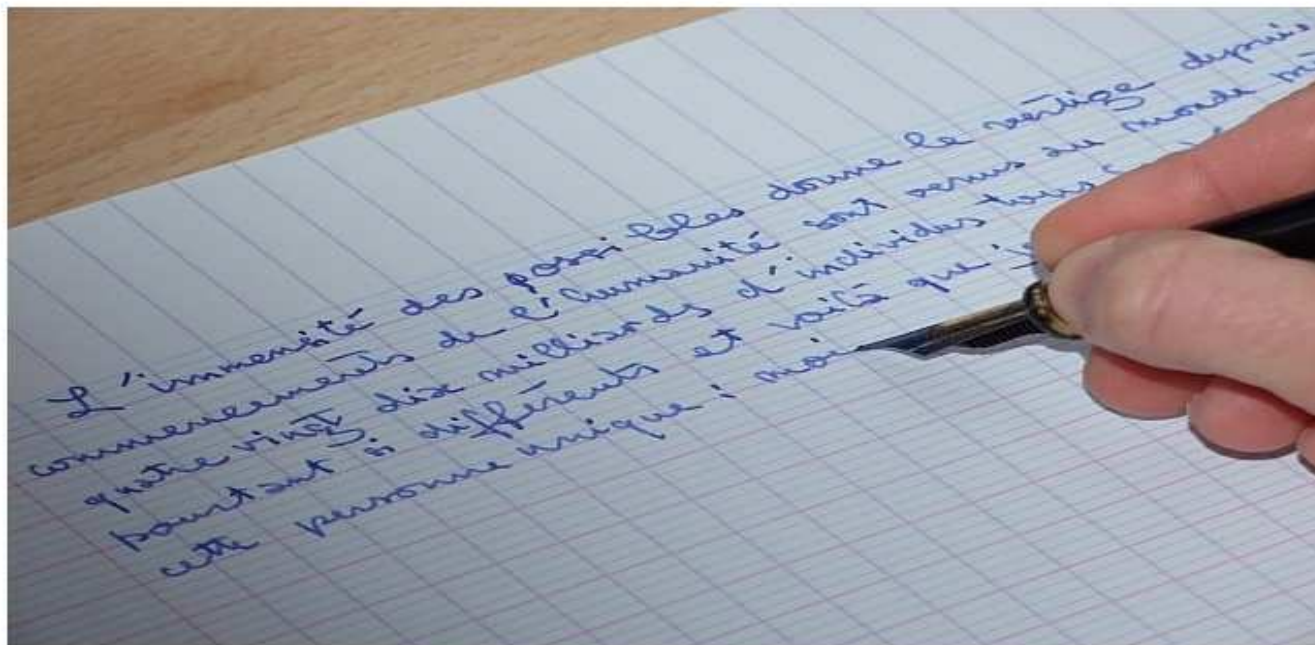 L'immensité des possibles donne le vertige depuis
commencements de l'humanité sont venus au monde
quatre vingt dix milliards d'individus tous
pourtant si différents et voilà que
cette personne unique : moi